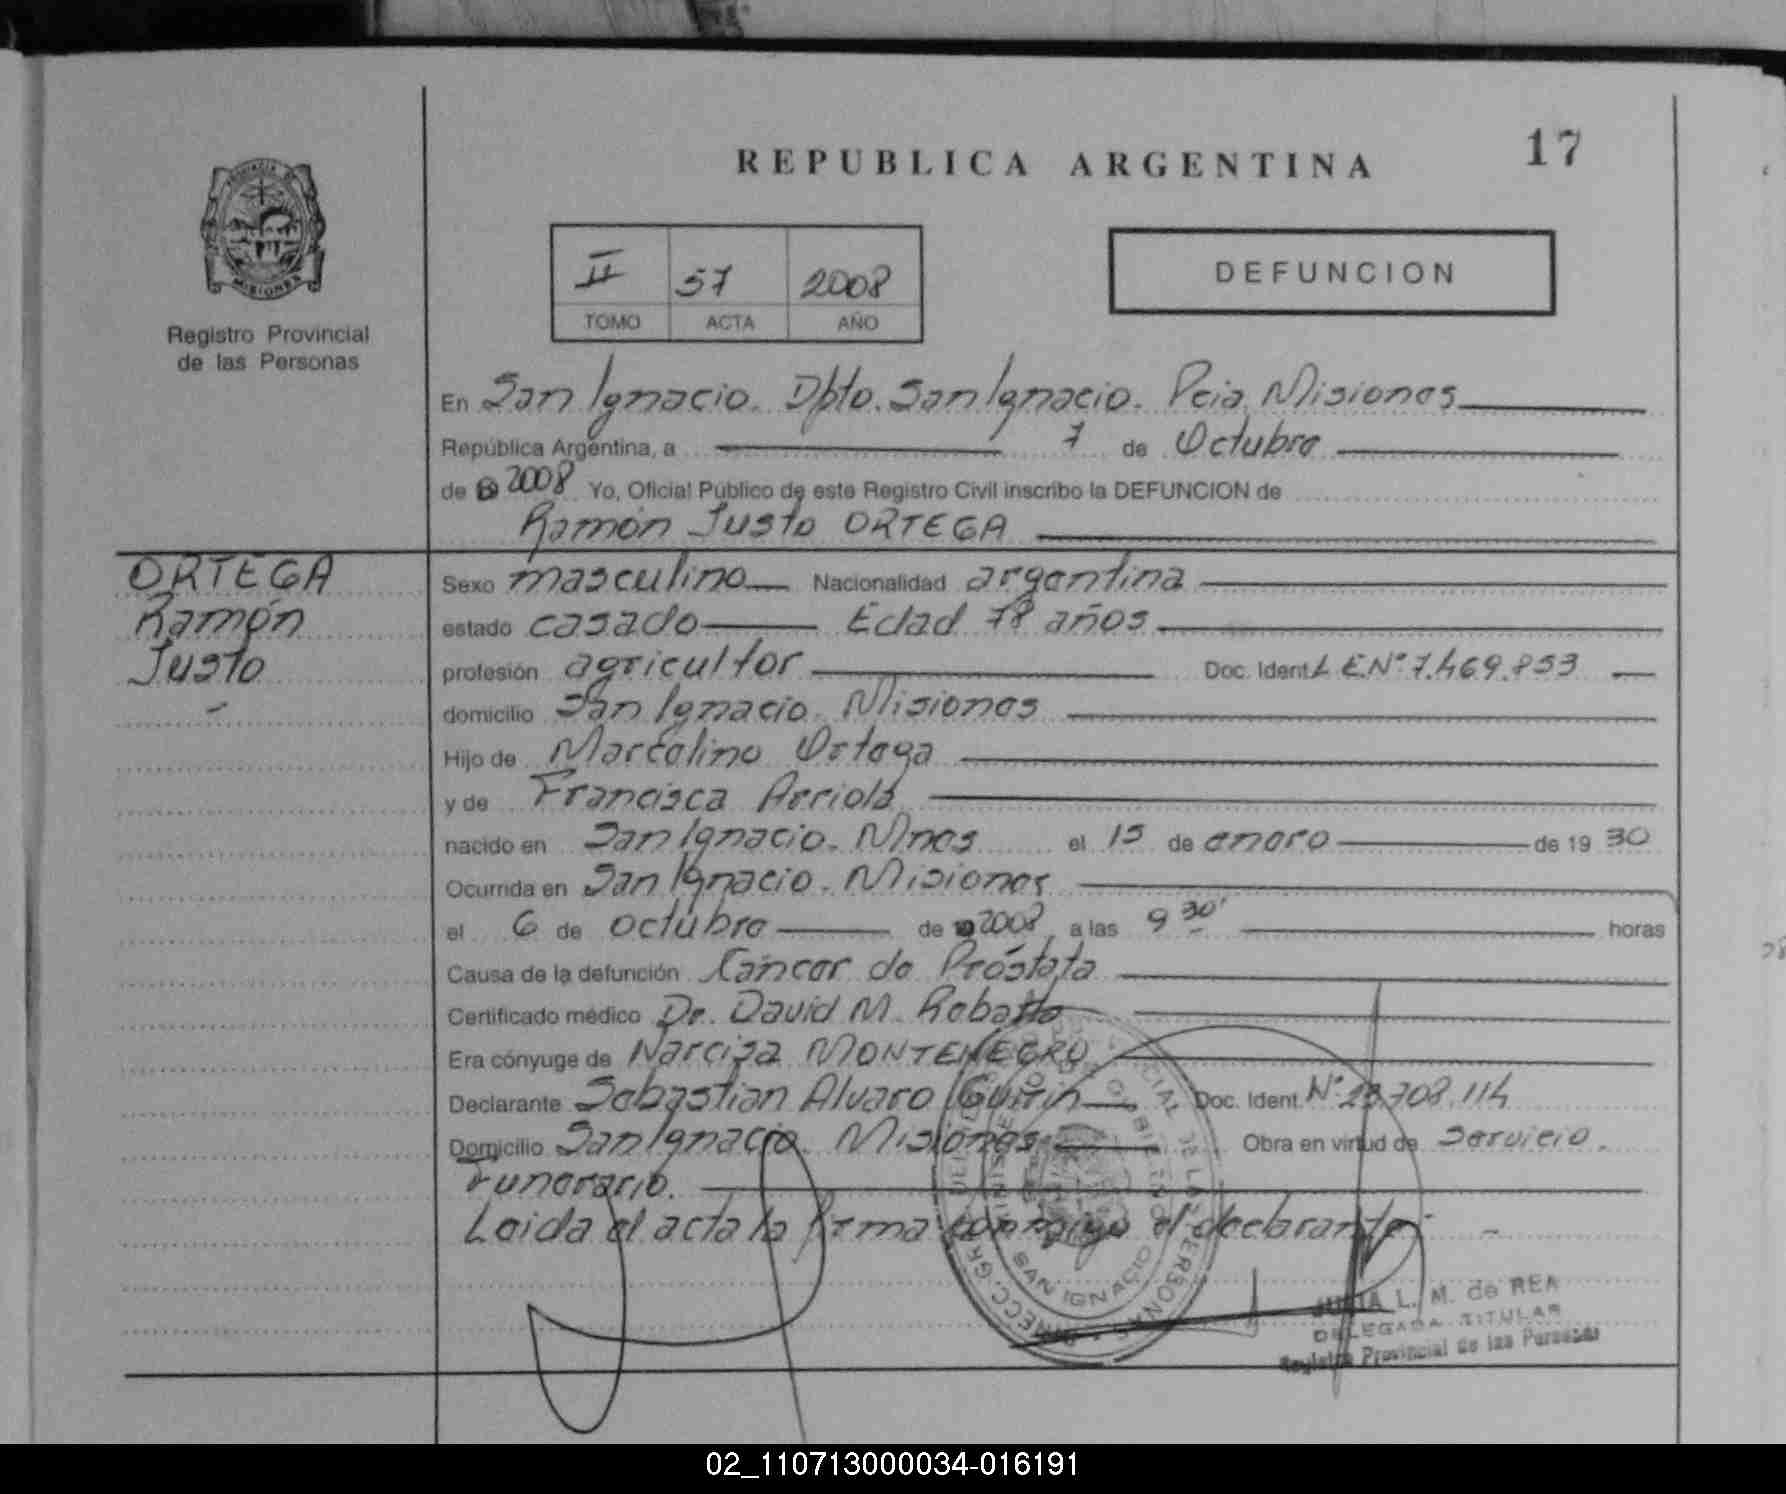 REPUBLICA ARGENTINA
17
MISIONES
Registro Provincial
de las Personas
II 57 2008
TOMO ACTA AÑO
DEFUNCION
En San Ignacio. Dpto. San Ignacio. Pcia Misiones
República Argentina, a 7 de Octubre
de 2008 Yo, Oficial Público de este Registro Civil inscribo la DEFUNCION de
Ramón Justo ORTEGA
ORTEGA
Ramón
Justo
Sexo masculino Nacionalidad argentina
estado casado Edad 78 años
profesión agricultor Doc. Ident. L E.Nº 7.469.853
domicilio San Ignacio. Misiones
Hijo de Marcelino Ortega
y de Francisca Arriola
nacido en San Ignacio. Mnes el 15 de enero de 19 30
Ocurrida en San Ignacio. Misiones
el 6 de octubre de 2008 a las 9 30' horas
Causa de la defunción Cáncer de Próstata
Certificado médico Dr. David M. Robatto
Era cónyuge de Narcisa MONTENEGRO
Declarante Sebastian Alvaro Guirin Doc. Ident. Nº 23.708.114
Domicilio San Ignacio. Misiones Obra en virtud de Servicio.
Funerario.
Leida el acta la firma conmigo el declarante.-
SAN IGNACIO
L. M. de REA
DELEGADA TITULAR
Registro Provincial de las Personas
02_110713000034-016191